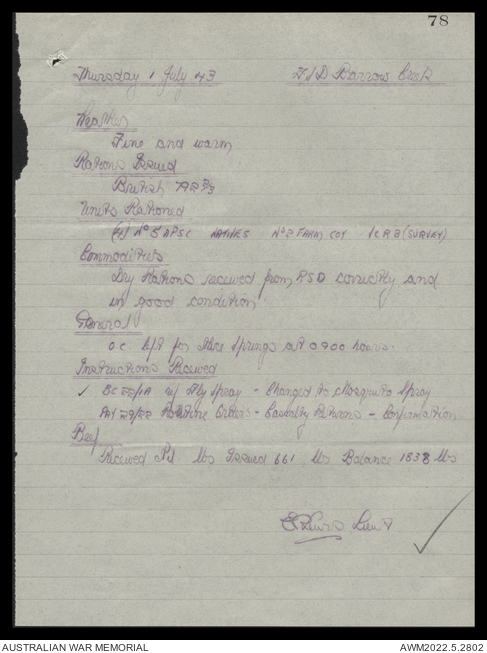 78
Thursday 1 July 43 F/D Barrow Creek
Weather
Fine and warm
Rations Issued
British
Units Rationed
(4) No 5 APSC NATIVES No 2 FARM COY (SURVEY)
Commodities
Dry Rations received from PSD correctly and
in good condition
General
OC for Alice Springs at 0900 hours.
Instructions Received
✓ Fly Spray - Changed to Mosquito Spray
Routine Orders - Casualty Returns - Confirmation
Beef
Received Nil lbs Issued 661 lbs Balance 1838 lbs
Lieut
AUSTRALIAN WAR MEMORIAL AWM2022.5.2802